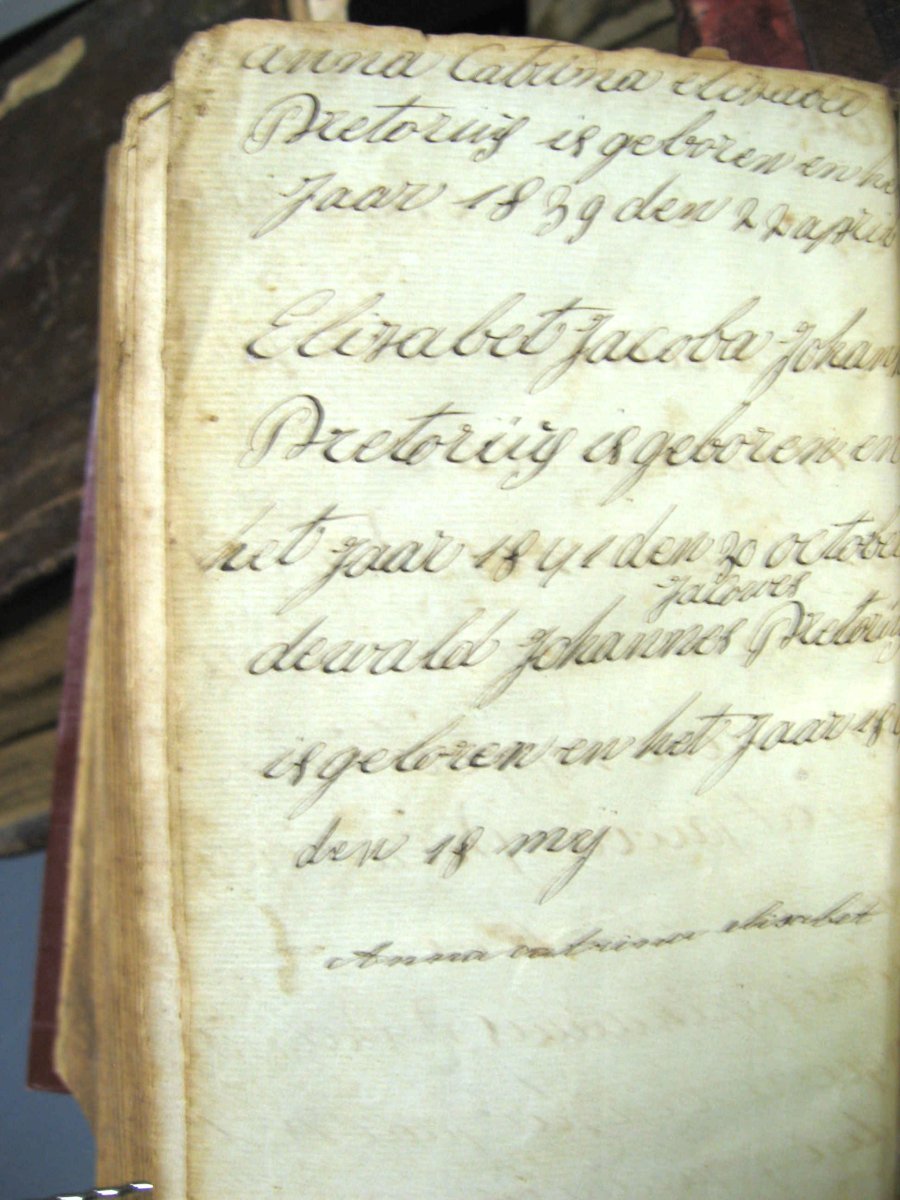 anna Catrima elizabet
Pretoriiÿs is geboren en he
Jaar 1839 den 22 april
Elizabet Jacoba Johann
Pretoriiÿs is geboren en
het jaar 1841 den 30 octobe
Jacowes
dewald Johannes Pretoriiÿs
is geboren en het Jaar 18
den 18 mÿ
Anna catrima elisabet